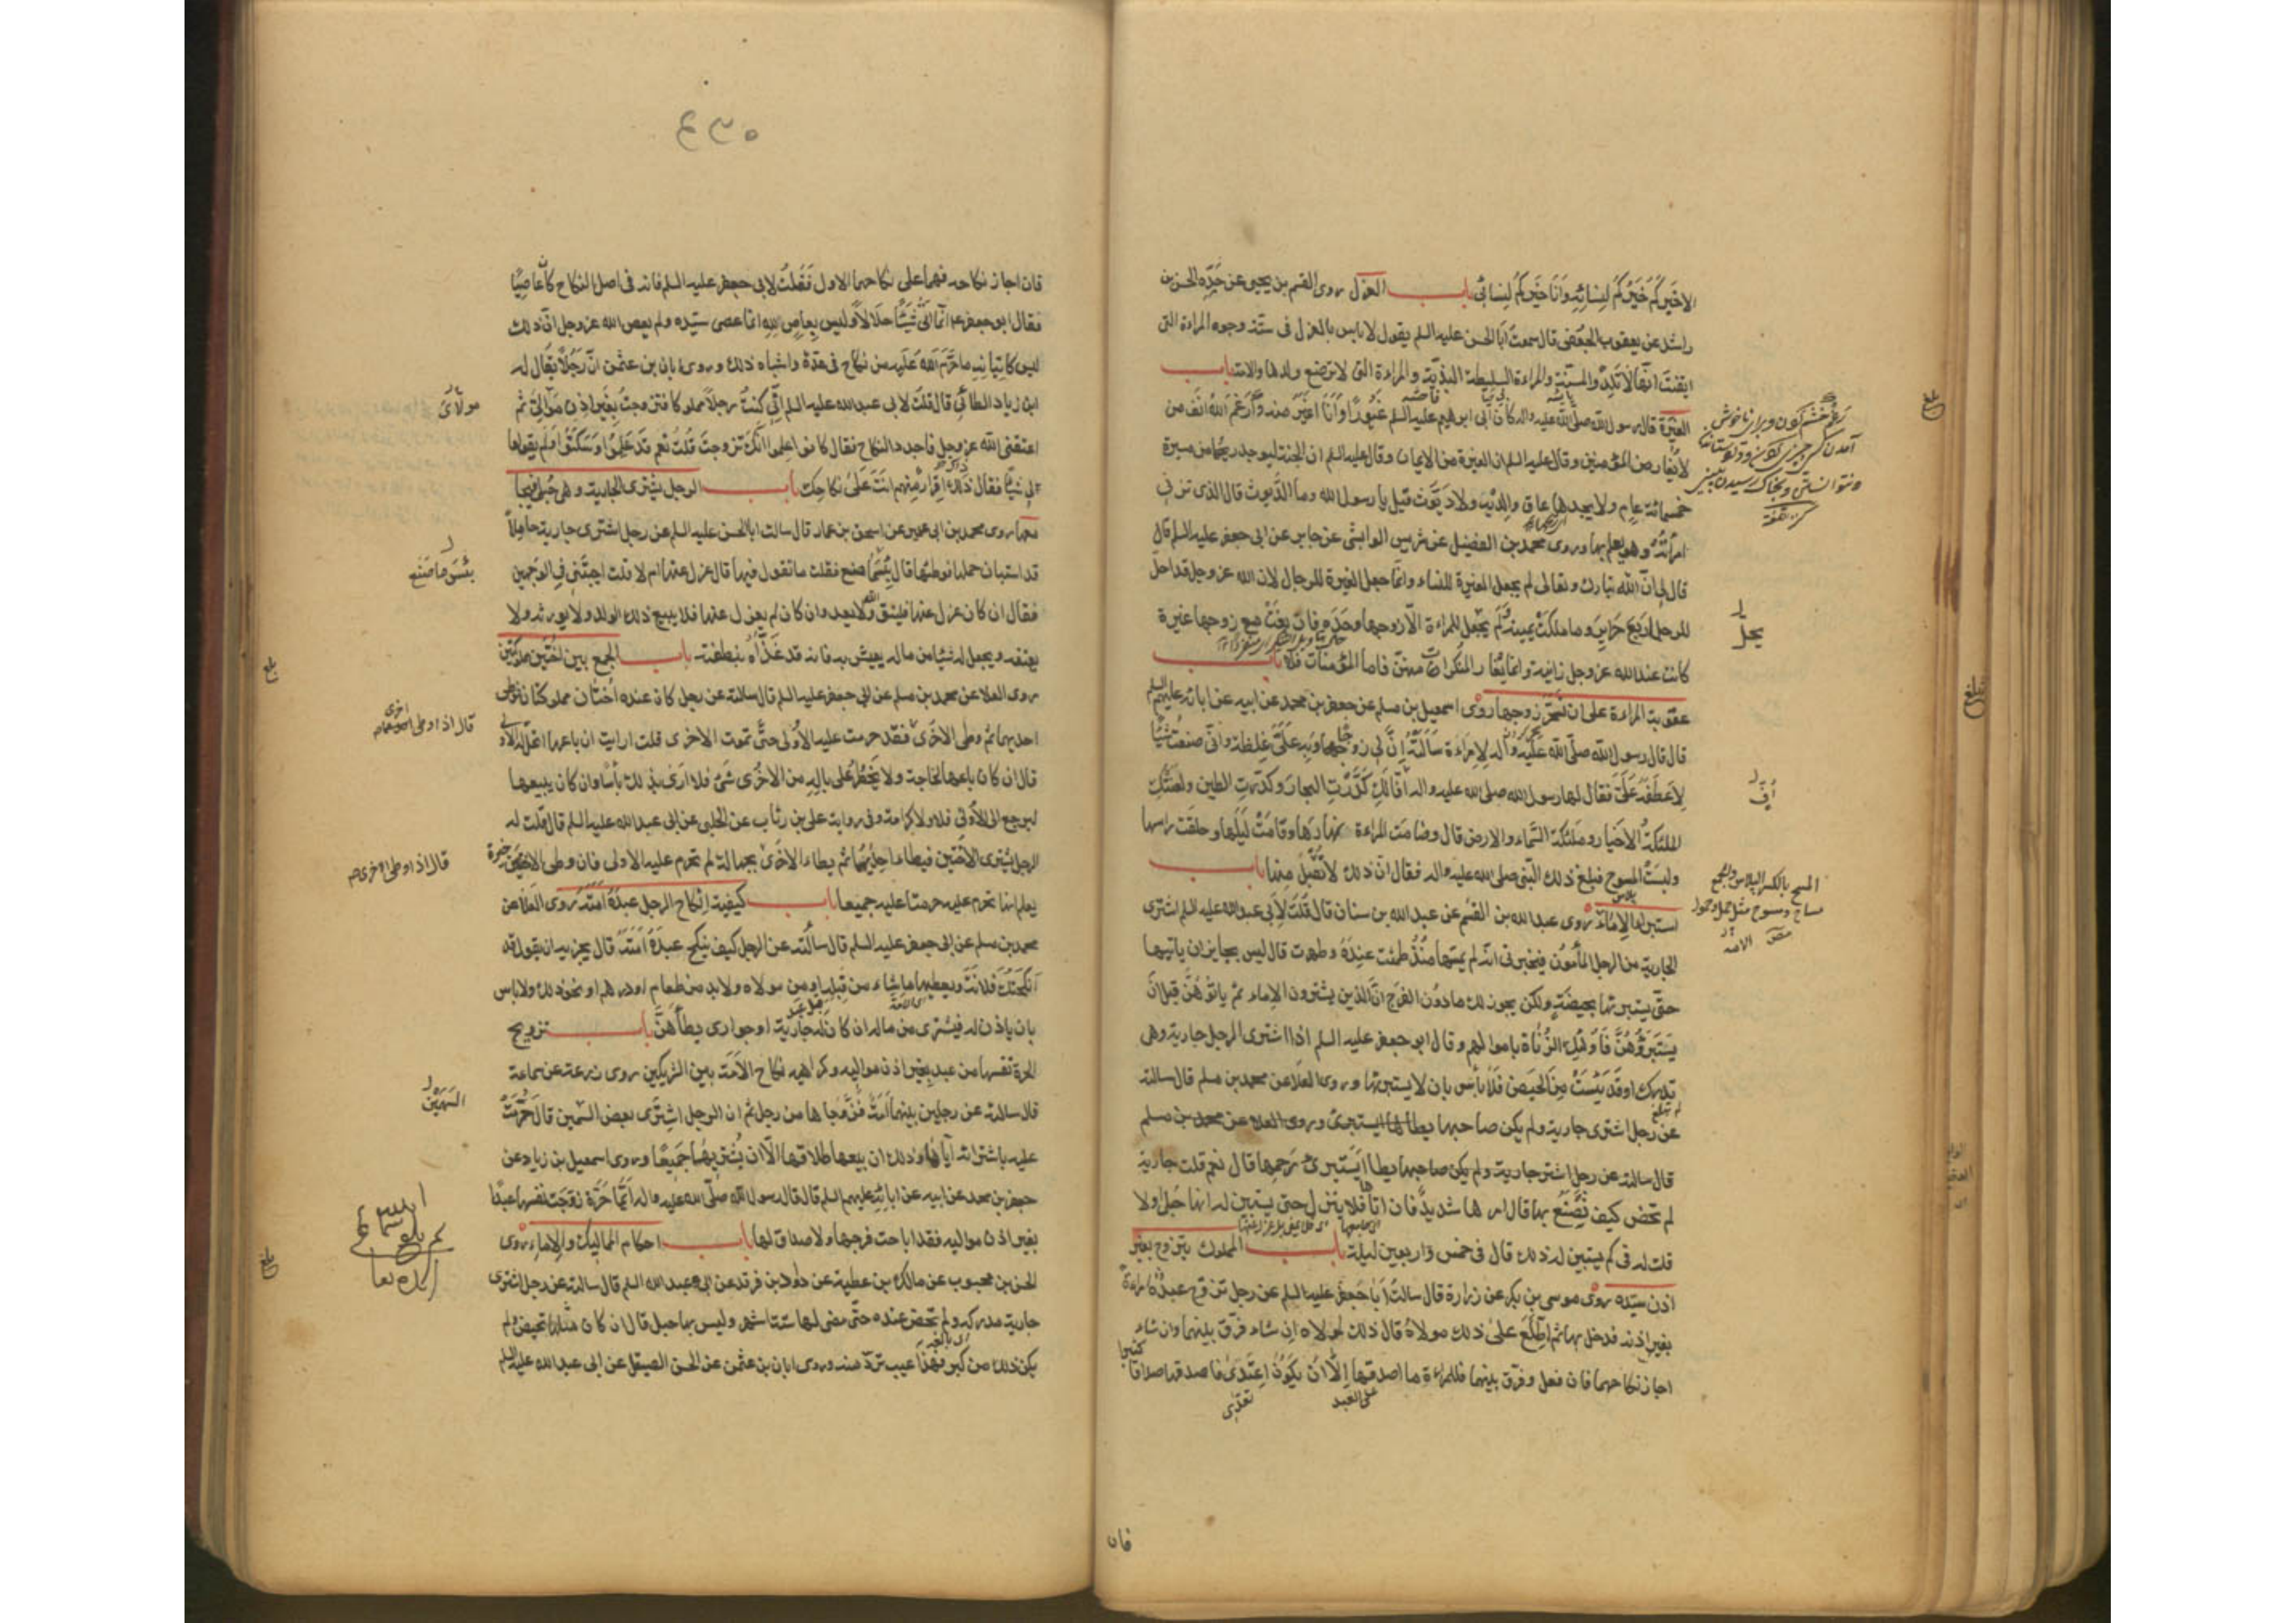 الاخَيركُم خَيركُم لِنِسائِهِ وَاَنَا خَيركُم لِنِسائى باب العزل روى القسم بن يحيى عن جَدِّه الحسن بن
راشد عن يعقوب الجعفى قال سمعت اَبَا الحسن عليه السلم يقول لا باس بالعزل فى ستة وجوه المراءة التى
ايقنت انها لا تَلِدُ والمسنّة والمراءة السليطة البذيّة والمراءة التى لا ترضع ولدها والامة باب
الغيرة قال رسول الله صلّى الله عليه واله كان ابى ابرهيم عليه السلم غيورًا وَاَنَا اغير منه وَاَرغَمَ اللهُ انف من
لا يَغار من المؤمنين وقال عليه السلم ان الغيرة من الايمان وقال عليه السلم ان الجنة ليوجد ريحها من مسيرة
خمسمائة عام ولا يجدها عاق ولا دَيّوث قيل يا رسول الله وما الدَّيوث قال الذى تزنى
امراَتُهُ وهو يعلم بها وروى محمد بن الفضيل عن شريس الوابشى عن جابر عن ابى جعفر عليه السلم قال
قال لى انّ الله تبارك وتعالى لم يجعل الغيرة للنساء وانّما جعل الغيرة للرجال لان الله عز وجل قد احلّ
للرجل اربع حَرايِرَ وما ملكت يمينه ولم يجعل للمراءة الّا زوجها وحَدَه فان بغت مع زوجها غيره
كانت عند الله عز وجل زانية وانما يَغار المنكرات منهن فاما المؤمنات فلا باب
عقوبة المراءة على ان تسحر زوجها روى اسمعيل بن مسلم عن جعفر بن محمد عن ابيه عن ابائه عليهم السلم
قال قال رسول الله صلّى الله عليه واله لامراءة سَاَلَتهُ اِنَّ لى زوجًا وبِهِ علىّ غِلظة وانّى صنعت شيئًا
لِاَعطِفَهُ عَلَىّ فقال لها رسول الله صلى الله عليه واله اُفٍّ لَكِ كَدَّرتِ البحار وكدّرت الطين ولعنتك
الملئكة الاخيار وملئكة السَّماء والارض قال وصامت المراءة نهارَها وقامَت لَيلَها وحلقت راسها
ولبست المسوح فبلغ ذلك النبى صلى الله عليه واله فقال انّ ذلك لا يُقبل مِنها باب
استبراء الاماء روى عبد الله بن القسم عن عبد الله بن سنان قال قلت لابى عبد الله عليه السلم اشترى
الجارية من الرجل المأمون فيخبرنى انه لم يمسّها مُنذُ طمثت عِندَهُ وطهرت قال ليس بجايز ان ياتيها
حتّى يستبرئها بحيضَة ولكن يجوز لك ما دون الفرج انّ الذين يشترون الاماء ثم ياتونَهُنَّ قبل ان
يَستَبرؤُهُنَّ فَاُولئِكَ الزُّناة باموالهم وقال ابو جعفر عليه السلم اذا اشترى الرجل جارية وهى
لم تدرك او قَد يَئِسَت مِنَ الحَيضِ فَلا بأس بان لا يستبرئها وروى العلا عن محمد بن مسلم قال سالته
عن رجل اشترى جارية ولم يكن صاحبها يطاها ايستبرئ وروى العلا عن محمد بن مسلم
قال سالته عن رجل اشتر جارية ولم يكن صاحبها يطا ايَستبرئ رَحِمها قال نعم قلت جارية
لم تحض كيف يَصنَعُ بها قال امرها شديد فان اتاها فلا ينزل حتى يستبين له انها حُبلى او لا
قلت له فى كم يستبين له ذلك قال فى خمس واربعين ليلة باب المملوك يتزوج بغير
اذن سيّده روى موسى بن بكر عن زرارة قال سالت اَبا جعفر عليه السلم عن رجل تزوج عبدُهُ امراءة
بغير اذنه فدخل بها ثم اطّلع على ذلك مولاهُ قال ذلك لمولاه ان شاء فرّق بينهما وان شاء
اجاز نكاحهما فان فعل وفرّق بينهما فللمراءة ما اصدقها اِلّا ان يكونَ اِعتَدى فاصدقها صداقا كثيرا
على العبد
تعدّى
فان
يحلّ
اُفّ
المسح بالكسر البلاس والجمع
بلغ
٤٣٥
فان اجاز نكاحه فهما على نكاحهما الاول فَقُلتُ لابى جعفر عليه السلم فانه فى اصل النكاح كان عاصيًا
فقال ابو جعفر انّما اَتى شَيئًا حلالا وليس بعاصٍ لِلهِ انّما عصى سيّده ولم يعص الله عز وجل انّ ذلك
ليس كاتيانه ما حَرَّمَ الله عَلَيه من نكاح فى عدّة واشباه ذلك وروى ابان بن عثمن انّ رجُلًا يقال له
ابن زياد الطائى قال قلت لابى عبد الله عليه السلم انّى كنتُ رجلًا مملوكا فتزوجت بغير اذن موالىّ ثم
اعتقنى الله عز وجل فاجدد النكاح فقال كانوا علموا انّكَ تزوجتَ قلتُ نعم قد عَلِموا وَسَكَتوا ولم يقولوا
لى شيئًا فقال ذلك اقرار مِنهم اَنتَ عَلى نكاحِكَ باب الرجل يشترى الجارية وهى حُبلى فيجا
معها روى محمد بن ابى عمير عن اسحق بن عمار قال سالت ابا الحسن عليه السلم عن رجل اشترى جارية حامِلًا
قد استبان حملها فوطئها قال بِئسَما صنع فقلت ما تقول فيها قال عزل عنها ام لا قلت اجبنى فى الوجهين
فقال ان كان عزل عنها فليتق الله ولا يعد وان كان لم يعزل عنها فلا يبيع ذلك الولد ولا يورثه ولا
يعتقه ويجعل له شيئا من ماله يعيش به فانه قد غَذّاهُ بنطفته باب الجمع بين اختين مملوكتين
روى العلا عن محمد بن مسلم عن ابى جعفر عليه السلم قال سالته عن رجل كان عنده اُختان مملوكتان فوطى
احديهما ثم وطى الاخرى فقد حرمت عليه الاُولى حتّى تموت الاخرى قلت ارايت ان باعها اتحلّ له الاُولى
قال ان كان باعها لحاجة ولا يَخطُرُ عَلى بالِهِ من الاخرى شئ فلا ارى بذلك بأسًا وان كان يبيعها
ليرجع الى الاُولى فلا ولا كرامة وفى رواية على بن رئاب عن الحلبى عن ابى عبد الله عليه السلم قال قلت له
الرجل يشترى الاختين فيطاء احديهما ثم يطاء الاخرى بجهالة لم تحرم عليه الاولى فان وطى الاخيرة
يعلم انها تحرم عليه حرمتا عليه جميعا باب كيفية اِنكاح الرجل عبدَهُ اَمَتَهُ روى العلا عن
محمد بن مسلم عن ابى جعفر عليه السلم قال سألته عن الرجل كيف ينكح عبدَهُ اَمَتَهُ قال يجزيه ان يقول قد
اَنكَحتُكَ فلانة ويعطيها ما شاء من قِبَلِه او من مولاه ولا بد من طعام او درهم او نحو ذلك ولا باس
بان ياذن له فيشترى من ماله ان كان له جارية او جوارى يطأهنّ باب تزويج
الحرة نفسها من عبد بغير اذن مواليه وكراهية نكاح الاَمَة بين الشريكين روى زرعة عن سماعة
قال سالته عن رجلين بينهما اَمَة فزوّجاها من رجل ثم ان الرجل اشترى بعض السّهمين قال حَرُمَت
عليه باشترائه اياها وذلك ان بيعها طلاقها الّا ان يشتريهما جَميعًا وروى اسمعيل بن زياد عن
جعفر بن محمد عن ابيه عن ابائه عليهم السلم قال قال رسول الله صلّى الله عليه واله اَيّما حُرّة زوّجت نفسها عبدًا
بغير اذن مواليه فقد اباحت فرجها ولا صداق لها باب احكام المماليك والاماء روى
الحسن بن محبوب عن مالك بن عطية عن داود بن فرقد عن ابى عبد الله السلم قال سالته عن رجل اشترى
جارية مدركة ولم تحض عنده حتّى مضى لها ستة اشهر وليس بها حبل قال ان كان مثلها تحيض ولم
يكن ذلك من كبر فهذا عيب تردّ منه وروى ابان بن عثمن عن الحسن الصيقل عن ابى عبد الله عليه السلم
مولاىَ
بئس ما صنع
قال اذا وطى اخرى
قال اذا وطى الاخرى
السهمين
بلغ
بلغ